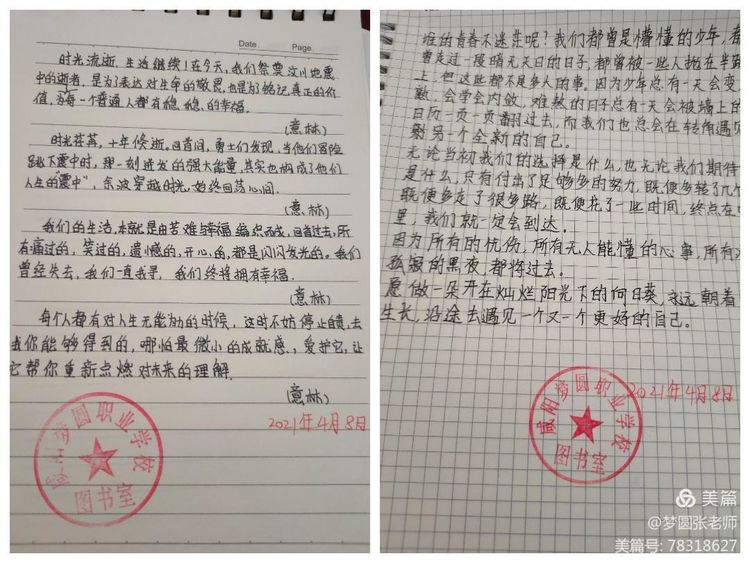 Date. Page.
时光流逝,生活继续!在今天,我们祭奠汶川地震
中的逝者,是为了表达对生命的敬畏,也是为了铭记真正的价
值,每一个普通人都有稳稳的幸福.
(意林)
时光荏苒,十年倏逝.回首间,勇士们发现,当他们冒险
跳下震中时,那一刻迸发的强大能量,其实也构成了他们
人生的"震中",余波穿越时光,始终回荡心间.
(意林)
我们的生活,本就是由苦难与幸福编织而成,回首过去,所
有痛过的,笑过的,遗憾的,开心的,都是闪闪发光的.我们
曾经失去,我们一直我寻,我们终将拥有幸福.
(意林)
每个人都有对人生无能为力的时候,这时不妨停止自责,去
找你能够得到的,哪怕最微小的成就感,爱护它,让
它帮你重新点燃对未来的理解.
(意林)
2021年4月8日
咸阳梦圆职业学校
图书室
谁的青春不迷茫呢?我们都曾是懵懂的少年,都
曾走过一段暗无天日的日子,都曾被一些人抛在半路
上,但这些都不是多大的事。因为少年总有一天会变
融,会学会内敛,难熬的日子总有一天会被墙上的
日历一页一页翻过去,而我们也总会在转角遇见
剩另一个全新的自己。
无论当初我们的选择是什么,也无论我们期待
是什么,只有付出了足够多的努力,既便多转了几个
既便多走了很多路,既便花了一些时间,终点在
里,我们就一定会到达。
因为,所有的忧伤,所有无人能懂的心事,所有
孤寂的黑夜,都将过去。
愿做一朵开在灿烂阳光下的向日葵,永远朝着
生长,沿途去遇见一个又一个更好的自己。
2021年4月8日
咸阳梦圆职业学校
图书室
美篇
@梦圆张老师
美篇号: 78318627